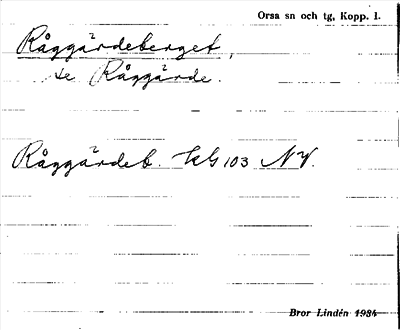 Orsa sn och tg, Kopp. l.
Råggärdeberget,
se Råggärde.
Råggärdeb. kG 103 NV.
Bror Lindén 1934